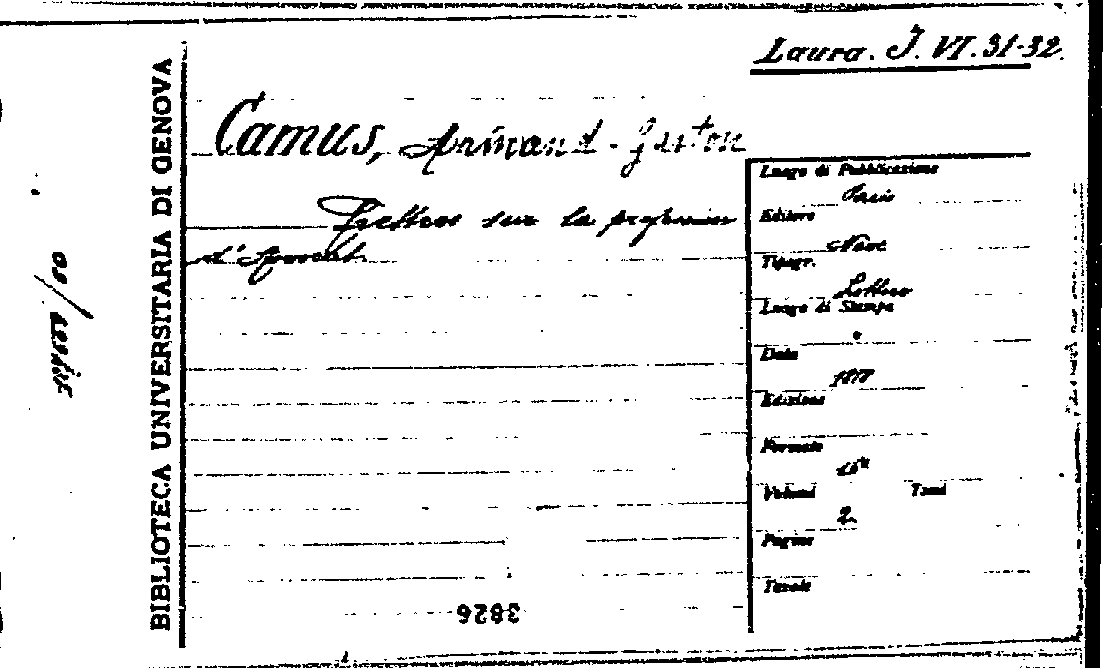 Laura. J. VI. 31-32.
BIBLIOTECA UNIVERSITARIA DI GENOVA
Camus, Armand-Gaston
Lettres sur la profession
d'Avocat.
Luogo di Pubblicazione
Paris
Editore
Nève
Tipogr.
Luogo di Stampa
Data
1818
Edizione
Formato
Volumi Tomi
2.
Pagine
Tavole
3826